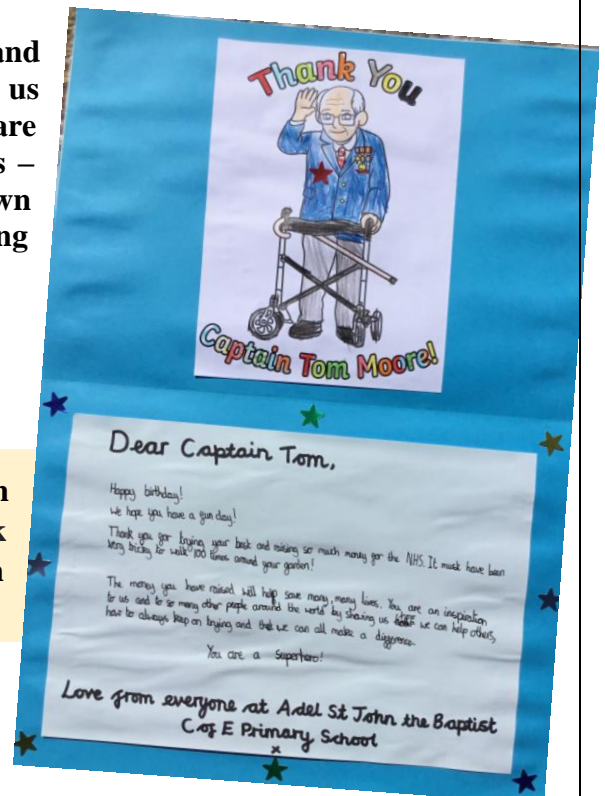 and
us
are
s –
wn
ng
n
k
n
Thank You
Captain Tom Moore!
Dear Captain Tom,
Happy birthday!
We hope you have a fun day!
Thank you for trying your best and raising so much money for the NHS. It must have been
very tricky to walk 100 times around your garden!
The money you have raised will help save many, many lives. You are an inspiration
to us and to so many other people around the world by showing us we can help others,
how to always keep on trying and that we can all make a difference.
You are a superhero!
Love from everyone at Adel St John the Baptist
C of E Primary School
x